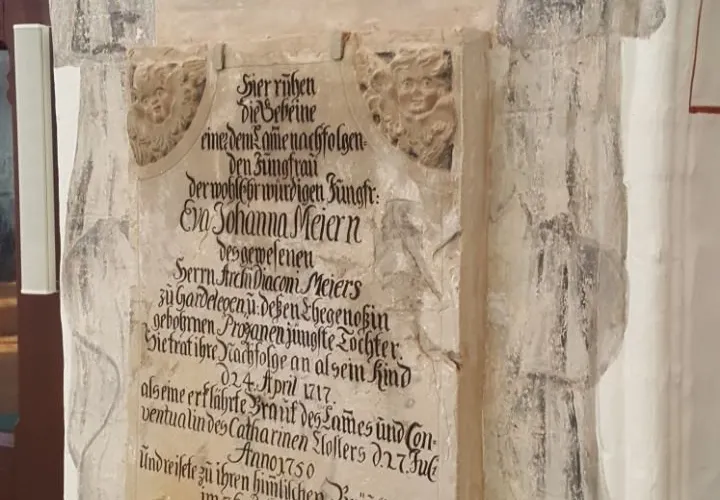 Hier rühen
die Gebeine
einer dem Lame nachfolgen-
den Jungfrau
der wohlehrwürdigen Jungfr:
Eva Johanna Meiern
des gewesenen
Herrn Archi Diaconi Meiers
zu Gardelegen, ü: deßen Ehegenoßin
gebohrnen Prozanen jüngste Tochter.
Sie trat ihre Nachfolge an als ein Kind
d 24. April 1717.
als eine erklährte Braut des Lames und Con-
ventualin des Catharinen Closters d. 27. Juli
Anno 1750
und reisete zu ihren himlischen
im